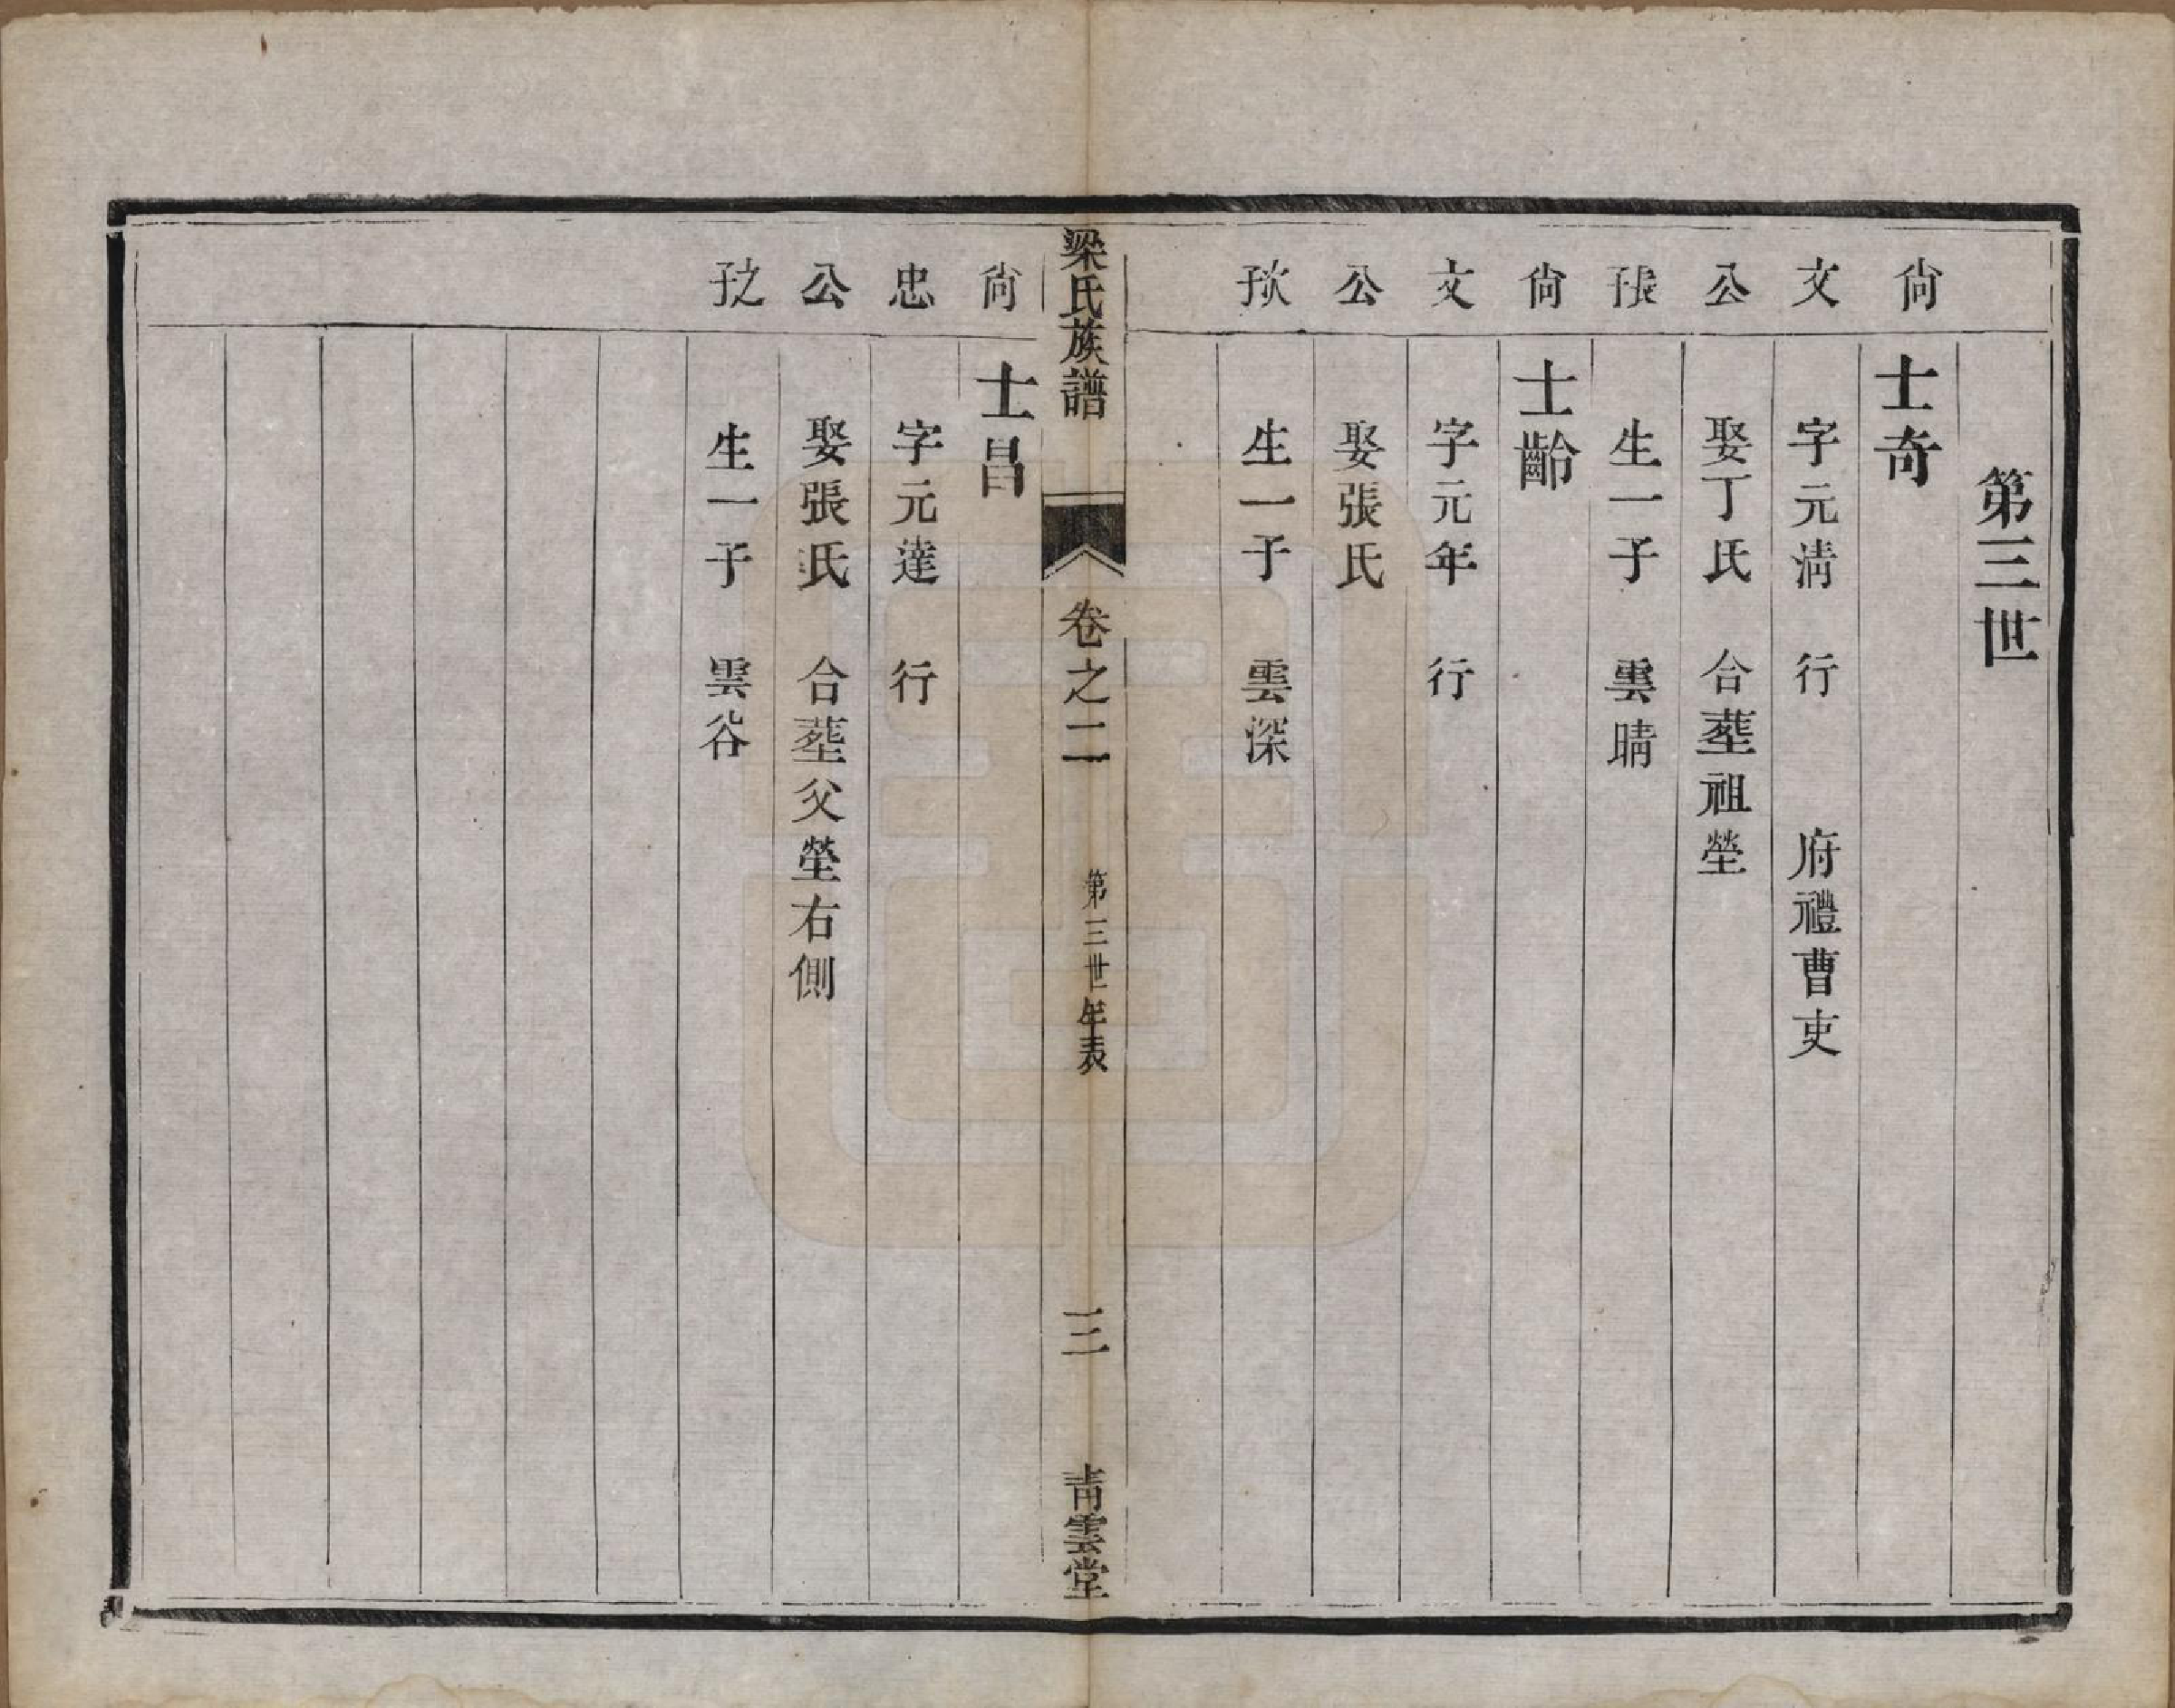 第三世
尙文公長子
士奇
字元淸 行 府禮曹吏
娶丁氏 合塟祖塋
生一子 雲晴
尙文公次子
士齡
字元年 行
娶張氏
生一子 雲深
梁氏族譜 卷之二 第三世年表 三 青雲堂
尙忠公之子
士昌
字元達 行
娶張氏 合塟父塋右側
生一子 雲谷